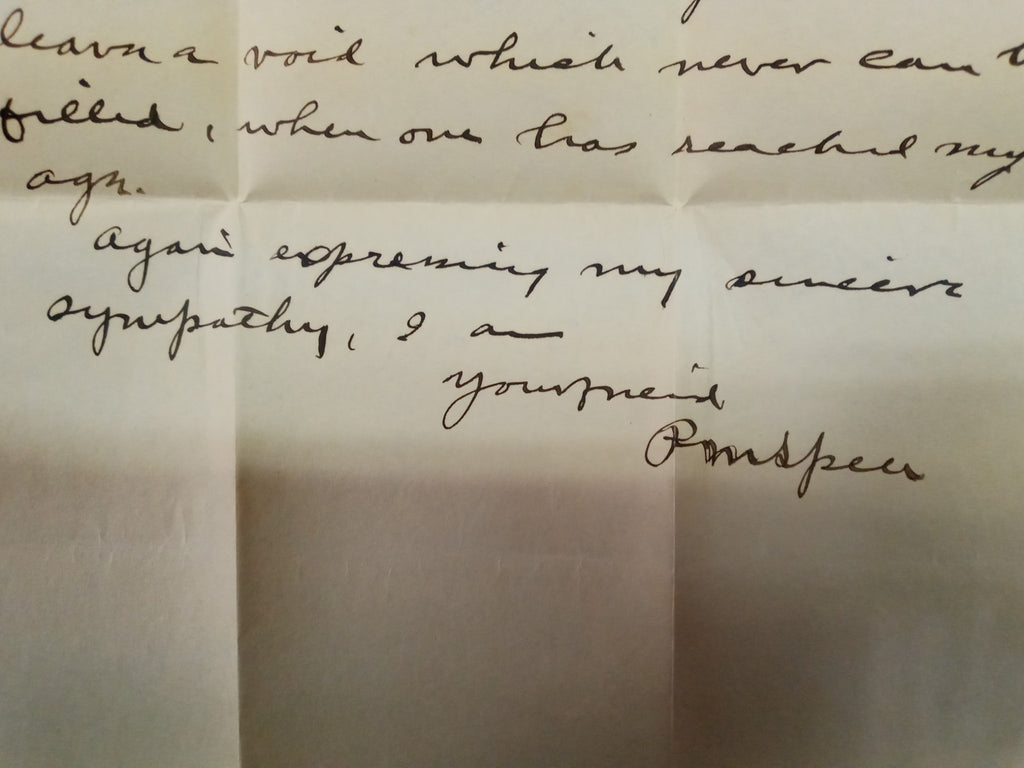 leave a void which never can b
filled, when one has reached my
age.
Again expressing my sincere
sympathy, I am
Your friend